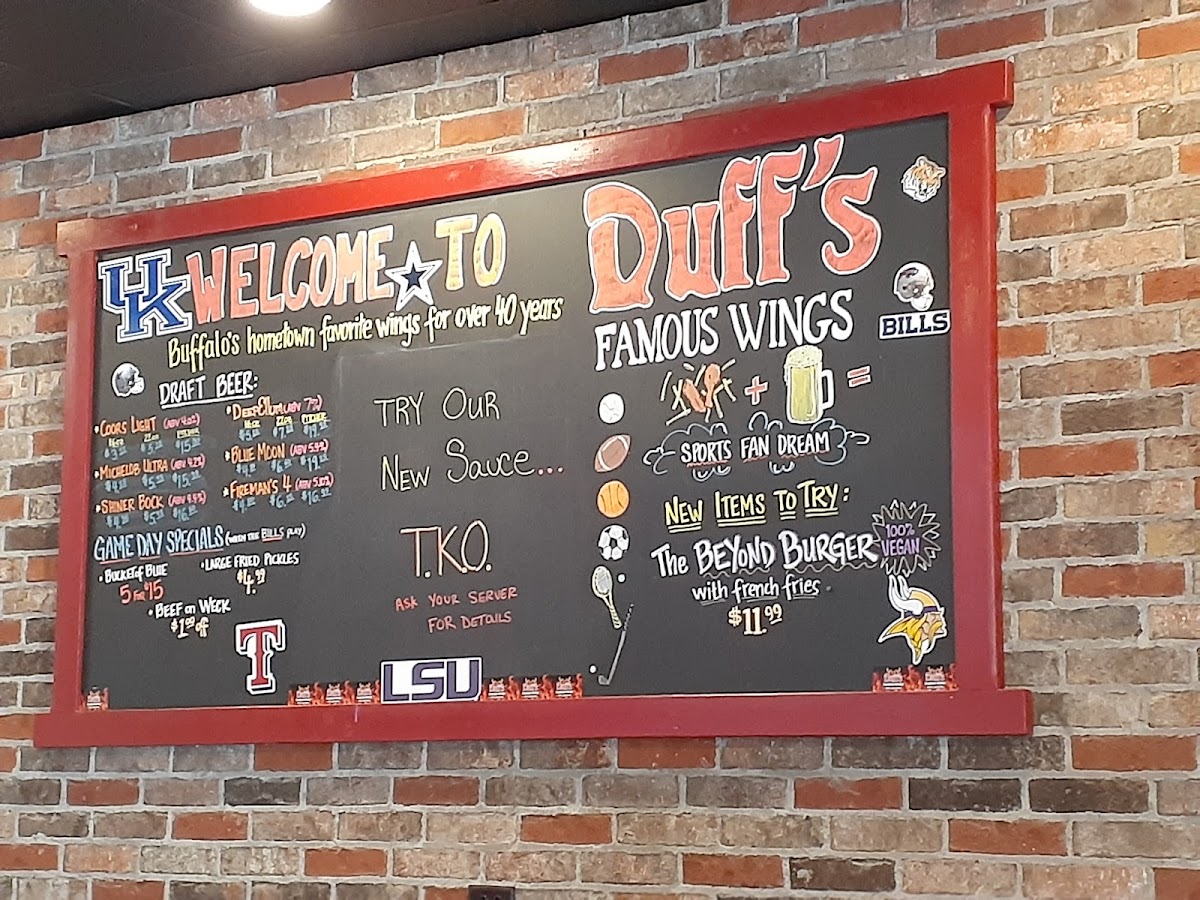 UK WELCOME TO
Buffalo's hometown favorite wings for over 40 years
DRAFT BEER:
• COORS LIGHT (ABV 4.02)
16oz 22oz PITCHER
• MICHELOB ULTRA (ABV 4.2%)
• SHINER BOCK (ABV 4.4%)
• DEEP ELLUM (ABV 7%)
16oz 22oz PITCHER
• BLUE MOON (ABV 5.4%)
• FIREMAN'S 4
GAME DAY SPECIALS (WHEN THE BILLS PLAY)
• BUCKET of BLUE
5 For $15
• LARGE FRIED PICKLES
$4.99
• BEEF on WECK
$1.00 off
T
TRY OUR
NEW SAUCE...
T.K.O.
ASK YOUR SERVER
FOR DETAILS
LSU
Duff's
FAMOUS WINGS
BILLS
+ =
SPORTS FAN DREAM
NEW ITEMS TO TRY:
The BEYOND BURGER
100%
VEGAN
with french fries.
$11.99